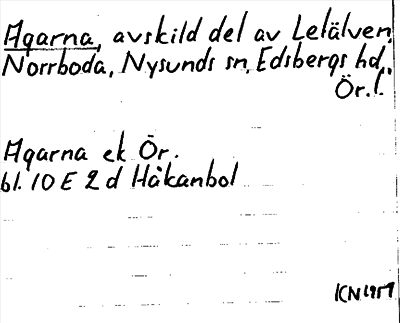 Agarna, avskild del av Letälven,
Norrboda, Nysunds sn, Edsbergs hd,
Ör. l.
Agarna ek Ör.
bl. 10 E 2 d Håkanbol
KN 1957